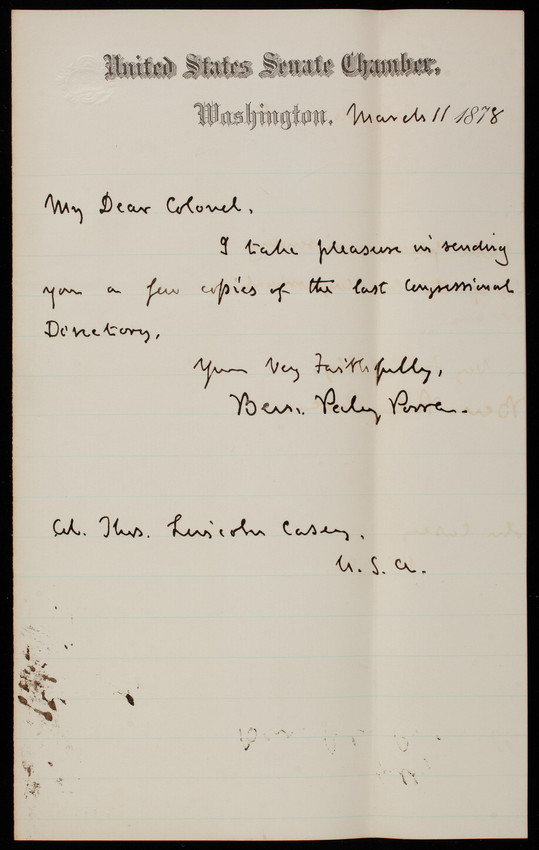 United States Senate Chamber,
Washington, March 11 1878
My Dear Colonel,
I take pleasure in sending
you a few copies of the last Congressional
Directory,
Yours Very Faithfully,
Ben: Perley Poore.
Col. Thos. Lincoln Casey,
U. S. A.